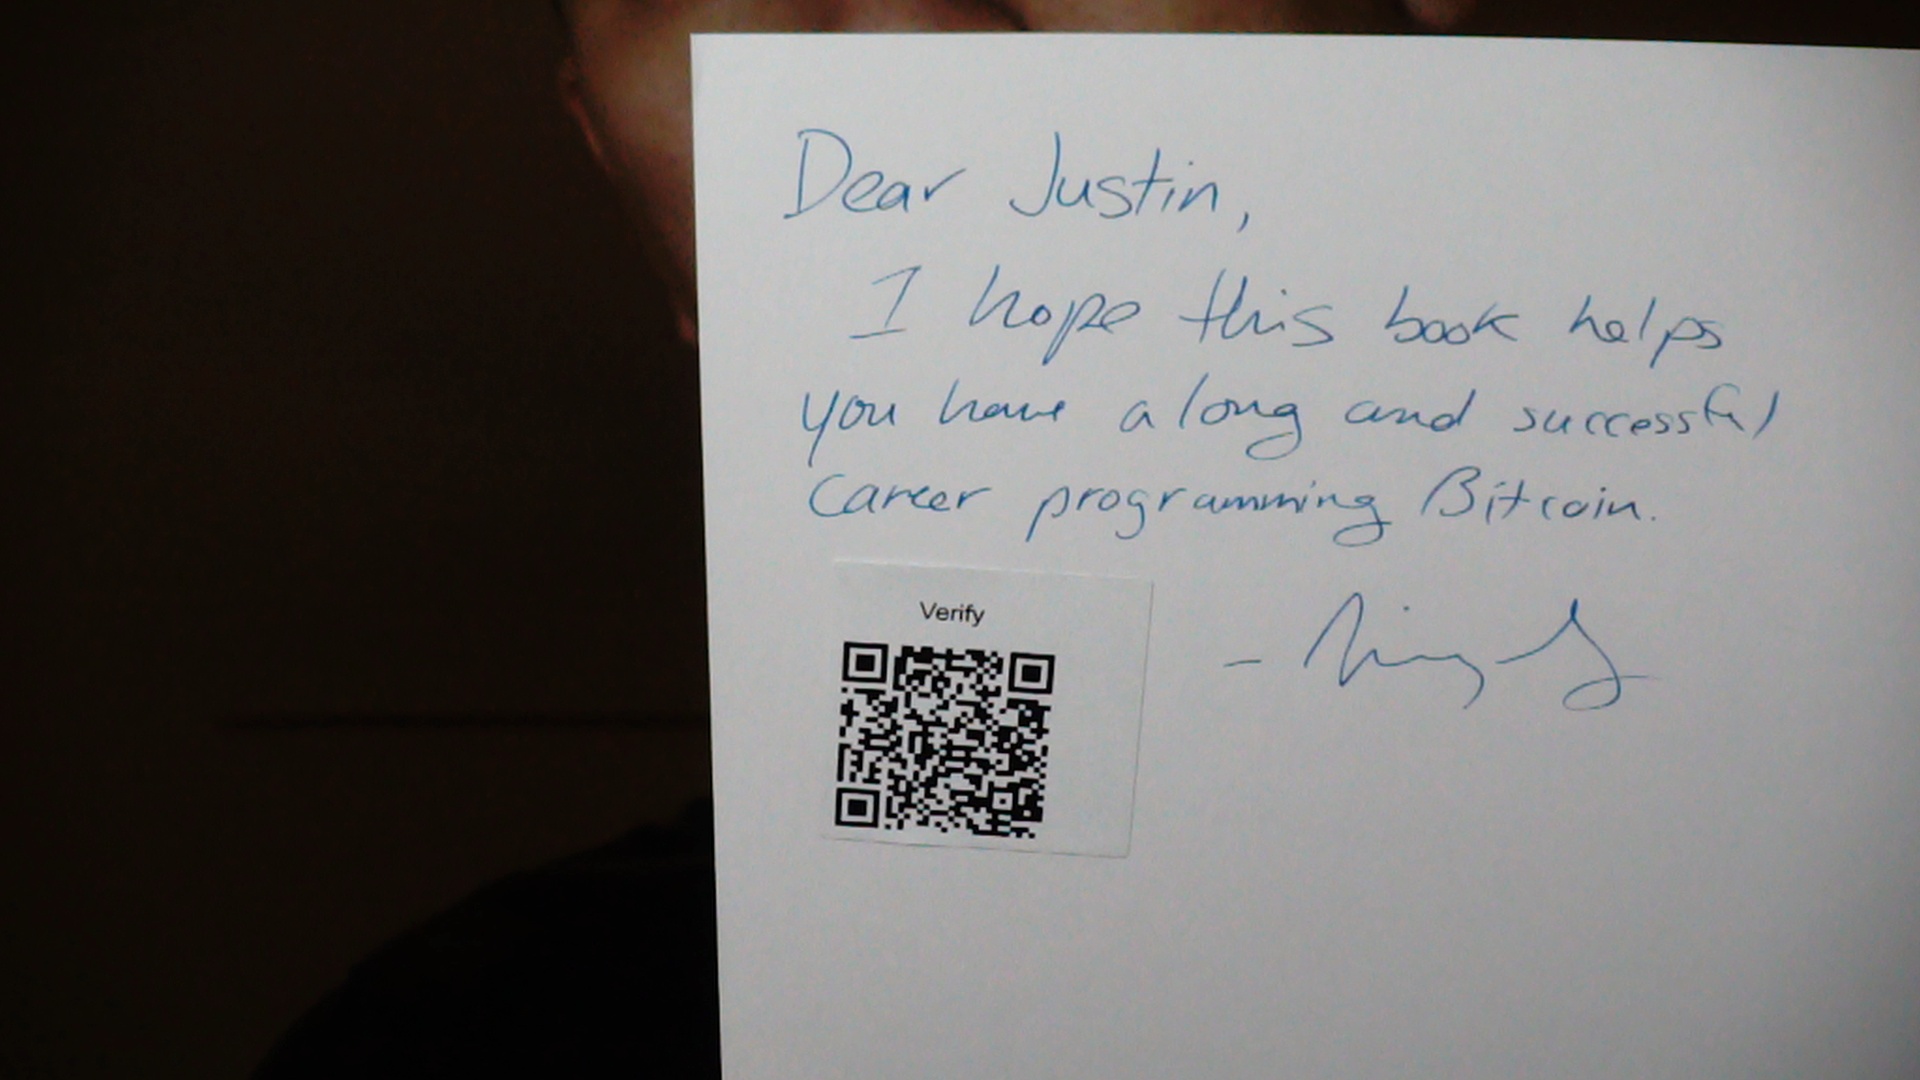 Dear Justin,
I hope this book helps
you have a long and successful
career programming Bitcoin.
Verify